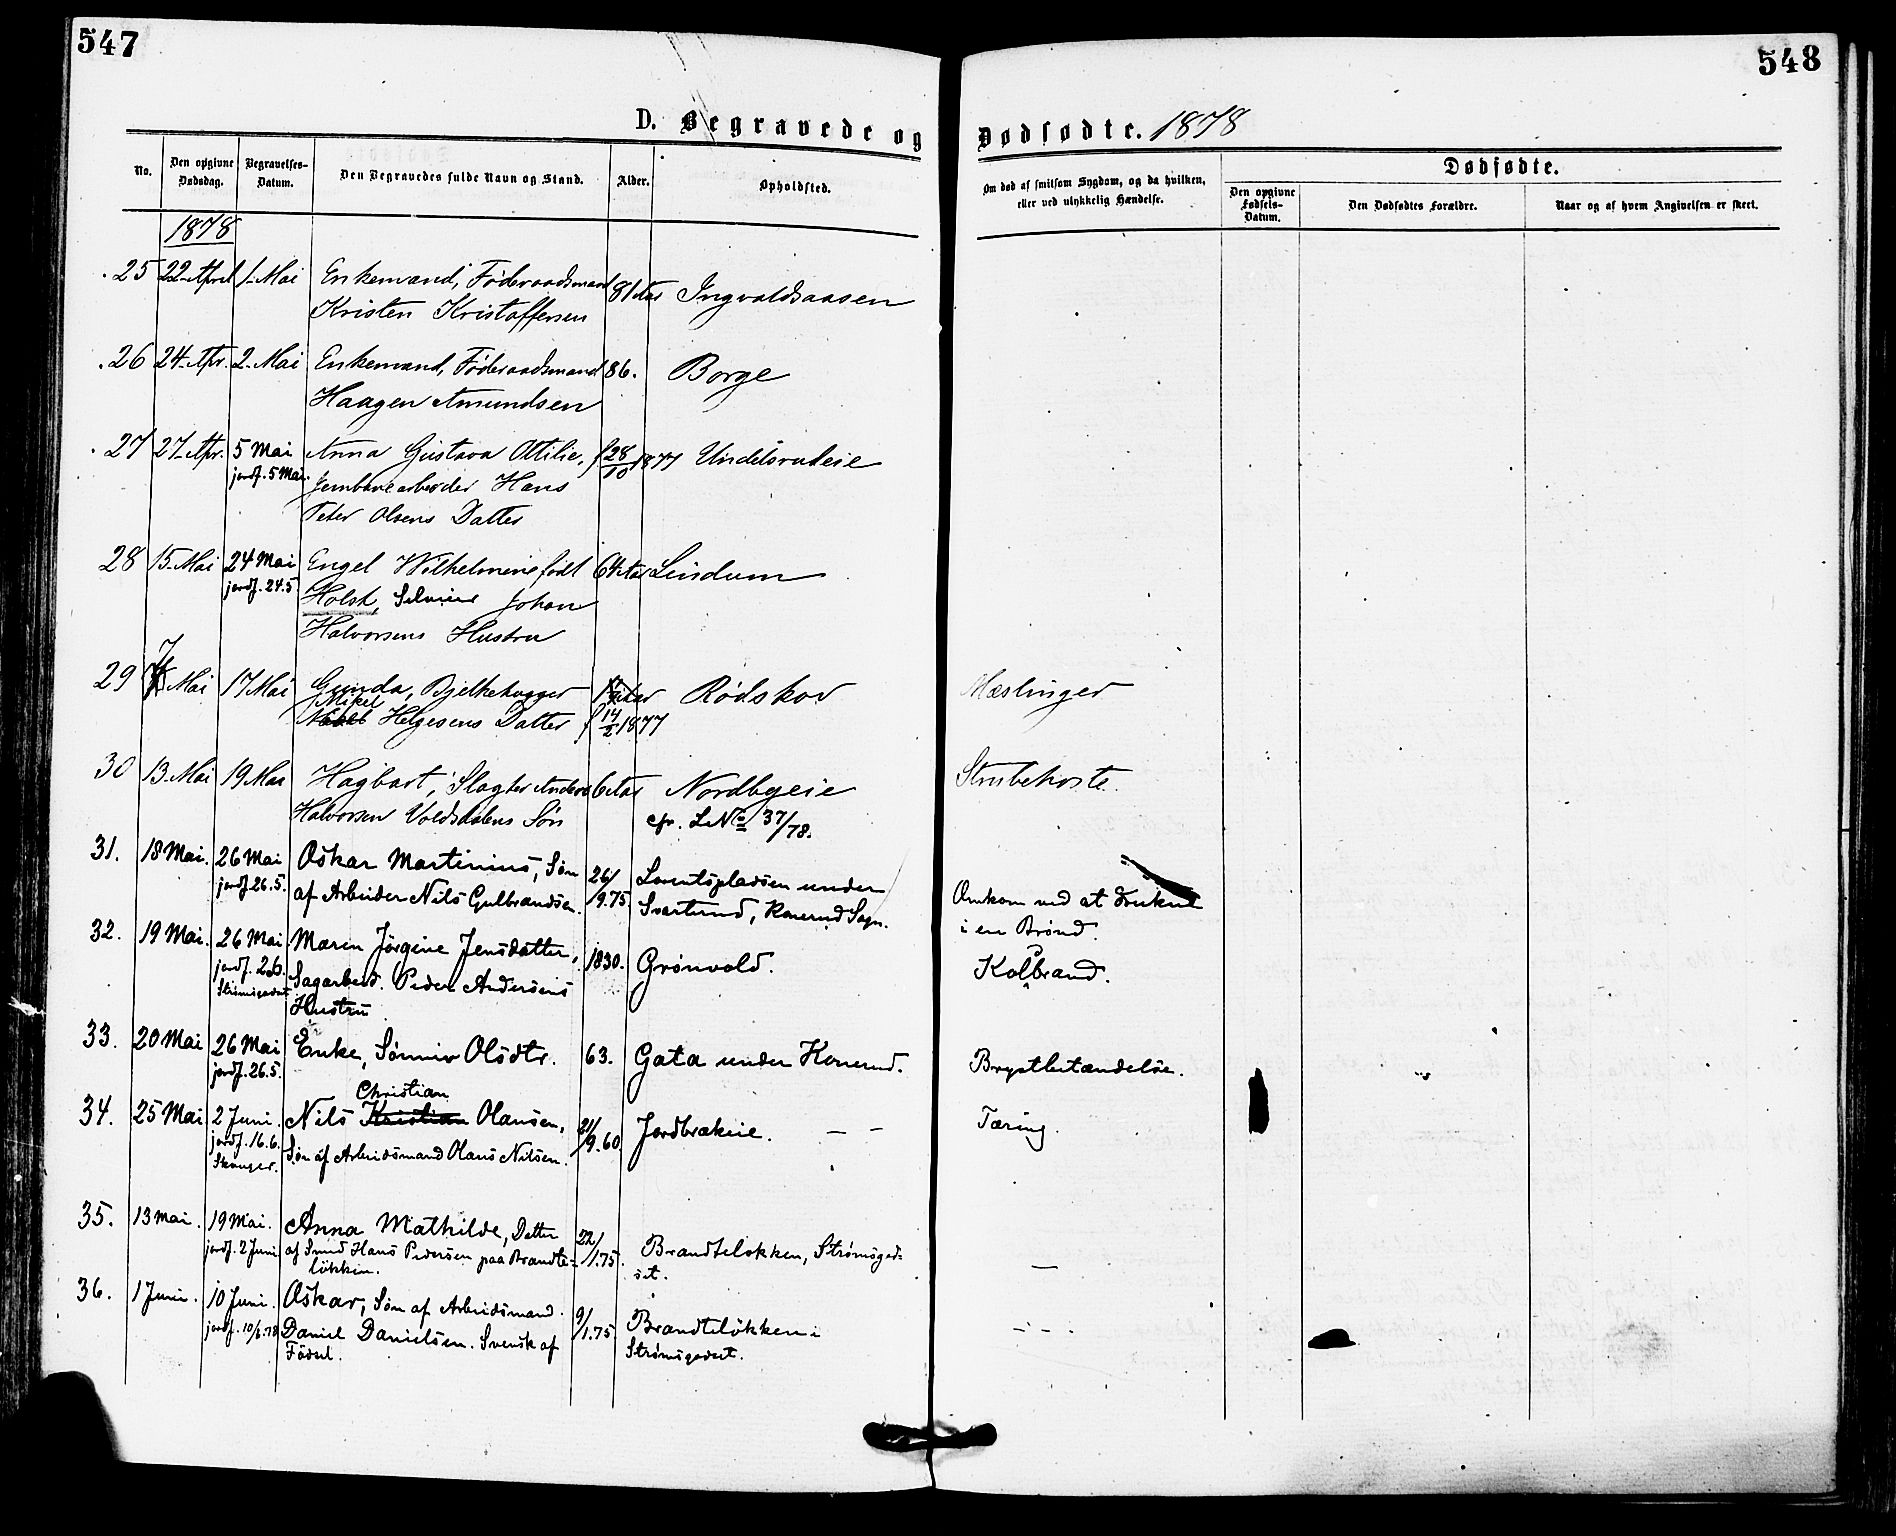 547
548
D. Begravede og Dødfødte. 1878
No.
Den opgivne Dødsdag.
Begravelses-Datum.
Den Begravedes fulde Navn og Stand.
Alder.
Opholdsted.
Om død af smitsom Sygdom, og da hvilken, eller ved ulykkelig Hændelse.
Dødfødte.
Den opgivne Fødsels-Datum.
Den Dødfødtes Forældre.
Naar og af hvem Angivelsen er skeet.
1878
25 22 April 1 Mai Enkemand, Føderaadsmand 81 Aar Ingvaldsaasen
Kristen Kristoffersen
26 24 Apr. 2 Mai Enkemand, Føderaadsmand 86. Borge
Haagen Amundsen
27 27 Apr. 5 Mai Anna Gustava Ottilie, f 28/10 1877 Undelsrudeie
jordf. 5 Mai. Jernbanearbeider Hans
Peter Olsens Datter
28 15 Mai 24 Mai Engel Wilhelmine født 64 Aar Lindum
jordf. 24.5. Holst, Selveier Johan
Halvorsens Hustru
29 7 Mai 17 Mai Gunda, Bjelkehugger Rødskov Mæslinger
Mikel
Helgesens Datter f 14/2 1877
30 13 Mai 19 Mai Hagbart, Slagter Anders 6 Aar Nordbyeie Strubehoste.
Halvorsen Voldsdalens Søn cfr. L. No 37/78.
31. 18 Mai. 26 Mai Oskar Martinius, Søn 26/9.75 Lorentspladsen under Omkom ved at drukne
jordf 26.5. af Arbeider Nils Gulbrandsen. Svartrud, Konerud Sogn. i en Brønd.
32. 19 Mai. 26 Mai Maren Jørgine Jensdatter, 1830. Grønvold. Kolbrand.
jordf. 26. Sagarbeid. Peder Andersens
Strømsgodset Hustru
33. 20 Mai 26 Mai Enke, Sønniv Olsdtr. 63. Gata under Konerud. Brystbetændelse.
jordf. 26.5.
Christian
34. 25 Mai 2 Juni. Nils Kristian Olausen, 21/9.60 Jordbrækeie. — — Tæring.
jordf. 16.6. Søn af Arbeidsmand Olaus Nilsen.
Skouger.
35. 13 Mai. 19 Mai. Anna Mathilde, Datter 22/1.75. Brandteløkken, Strømsgod-
jordf. 2 Juni af Smed Hans Pedersen paa Brandte- set. —
løkken.
36. 1 Juni. 10 Juni. Oskar, Søn af Arbeidsmand 9/1.75. Brandteløkken i — - - .
jordf. 10/6.78 Daniel Danielsen. Svensk af Strømsgodset.
Födsel.